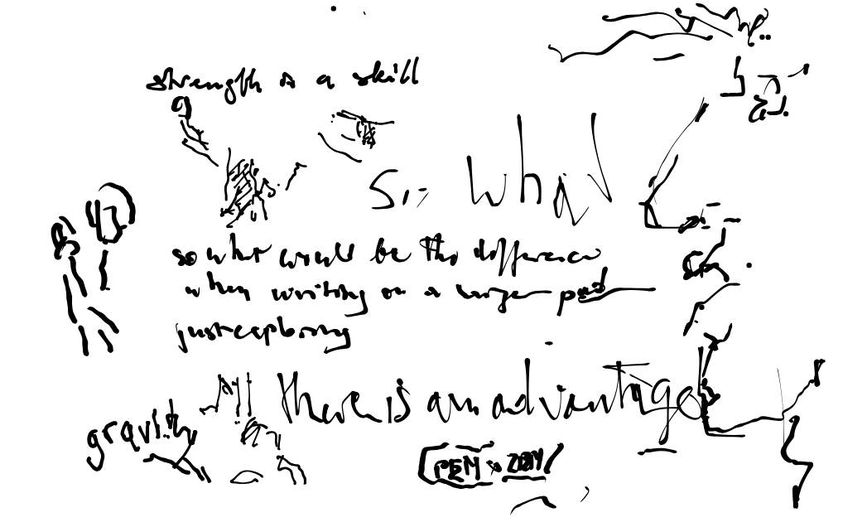 strength is a skill
So what
so what would be the difference
when writing on a larger pad
just exploring
there is an advantage
gravity